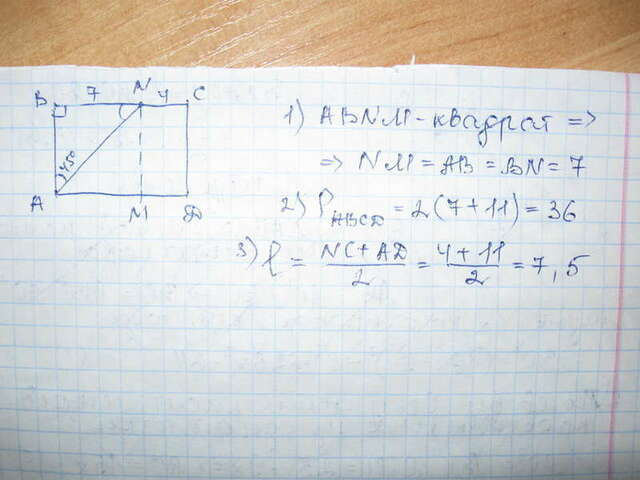 B 7 N 4 C
45°
A M D
1) ABNM - квадрат =>
=> NM = AB = BN = 7
2) P ABCD = 2(7+11) = 36
3) l = NC + AD / 2 = 4 + 11 / 2 = 7,5